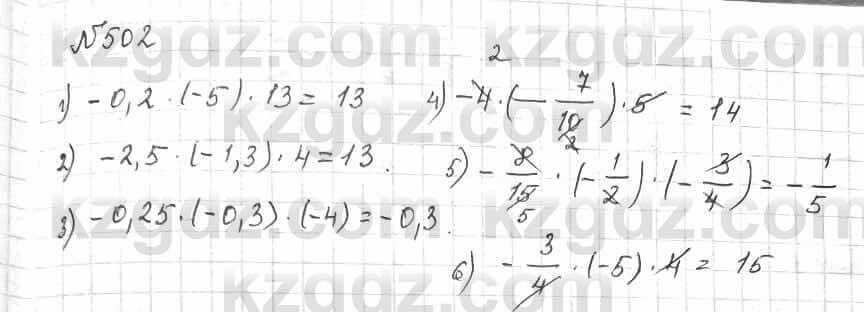 №502
1) -0,2 · (-5) · 13 = 13
2) -2,5 · (-1,3) · 4 = 13.
3) -0,25 · (-0,3) · (-4) = -0,3.
2
4) -4 · (-7/10) · 5 = 14
2
5) -8/15 · (-1/2) · (-3/4) = -1/5
5
6) -3/4 · (-5) · 4 = 15
kzgdz.com kzgdz.com
kzgdz.com
kzgdz.com kzgdz.com
kzgdz.com